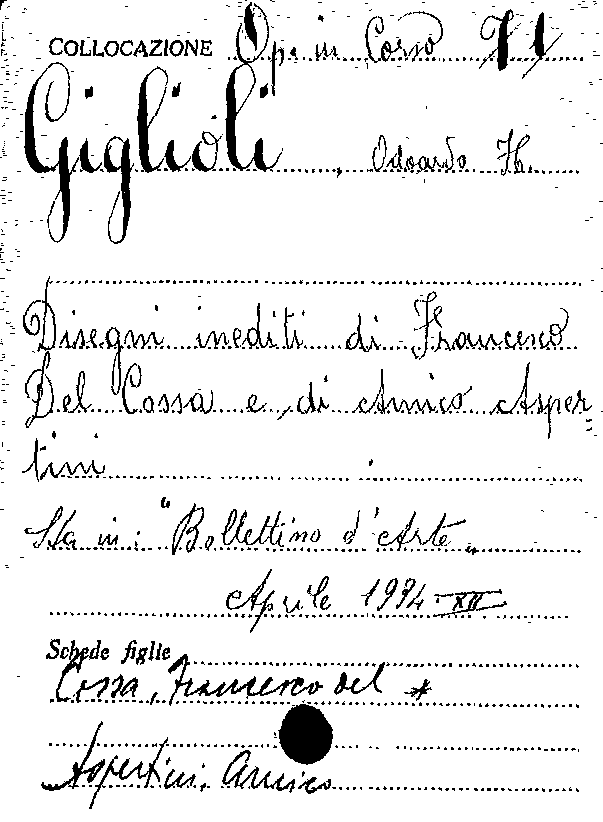 COLLOCAZIONE Op. in Corso 71
Giglioli, Odoardo H.
Disegni inediti di Francesco
Del Cossa e di Amico Asper=
tini
Sta in: "Bollettino d'Arte„
Aprile 1934-XII
Schede figlie
Cossa, Francesco del *
Aspertini, Amico